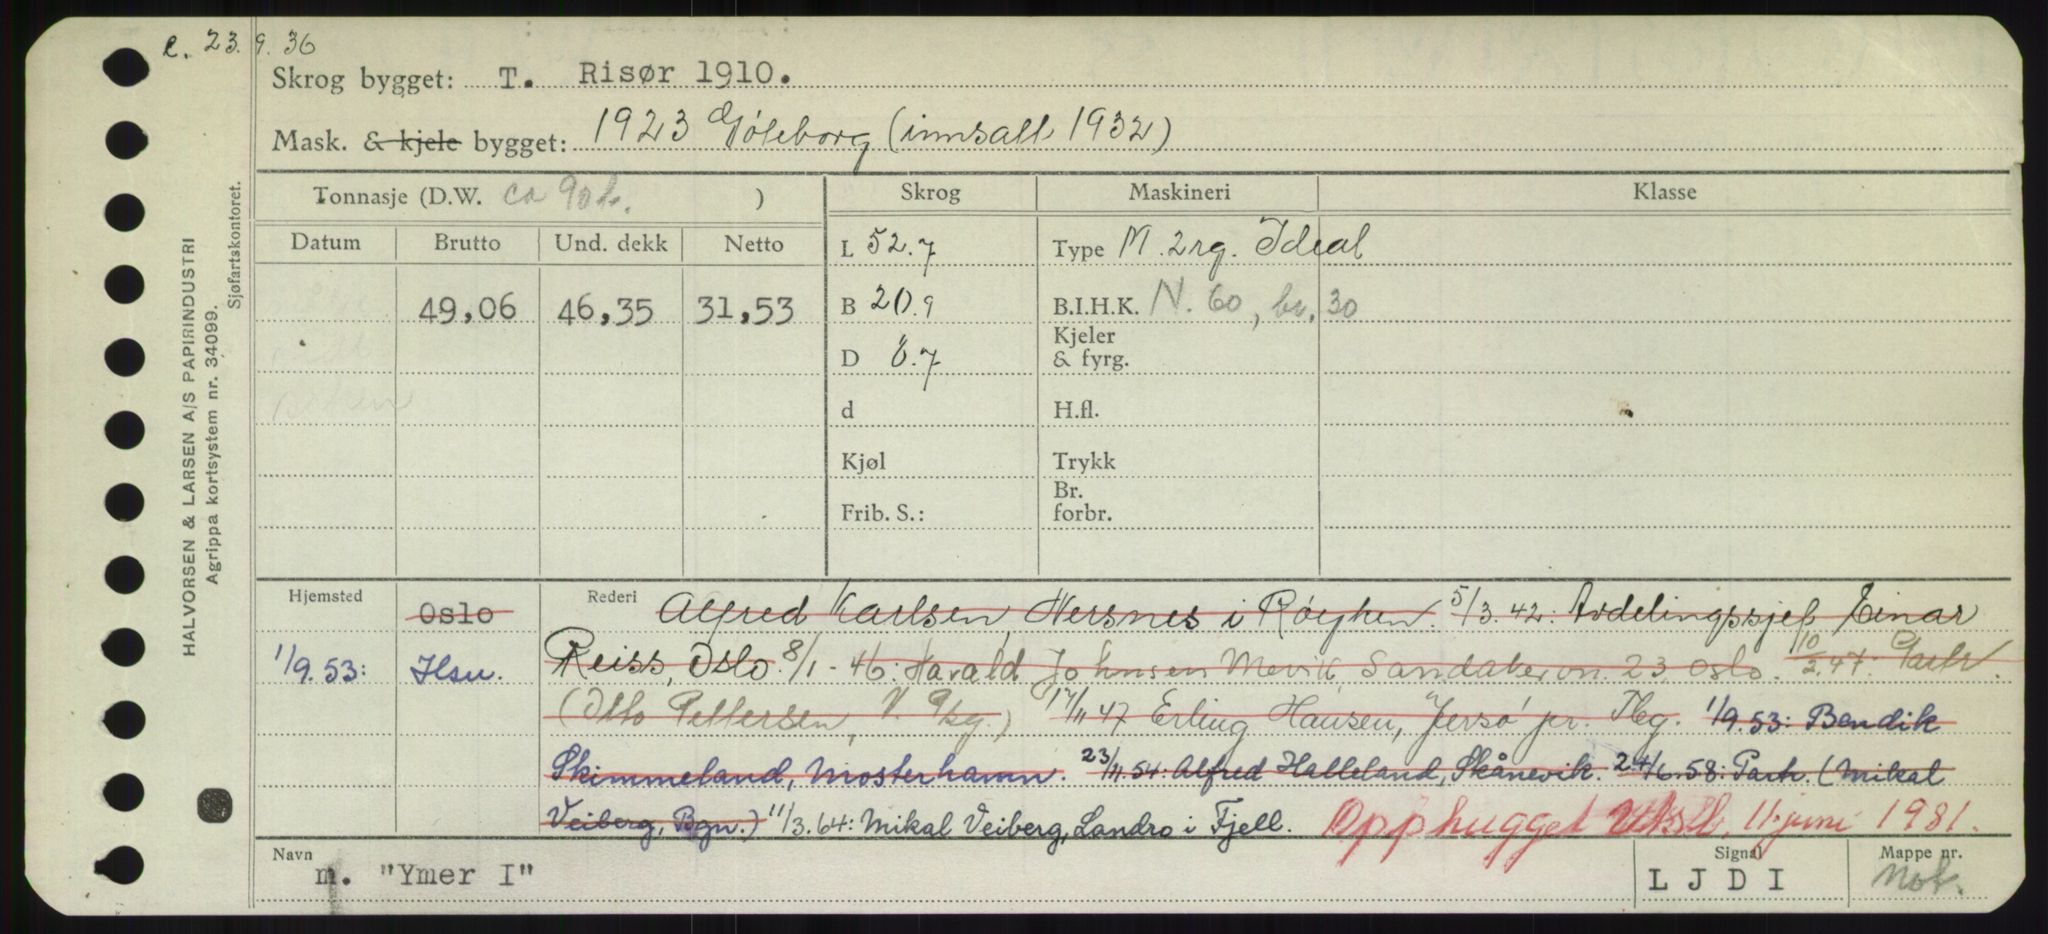 e. 23.9.36
Skrog bygget: T. Risør 1910.
Mask. & kjele bygget: 1923 Göteborg (innsatt 1932)
Tonnasje (D.W. ca 90 t. )
Skrog
Maskineri
Klasse
Datum Brutto Und. dekk Netto
49,06 46,35 31,53
L 52.7
B 20.9
D 6.7
d
Kjøl
Frib. S.:
Type M. 2rg. Ideal
B.I.H.K. N. 60, br. 30
Kjeler
& fyrg.
H.fl.
Trykk
Br.
forbr.
Hjemsted Oslo
1/9.53: Hsu.
Rederi Alfred Karlsen, Nersnes i Røyken. 5/3.42: Avdelingssjef Einar
Reiss, Oslo. 8/1-46: Harald Johnsen Mevik, Sandakervn. 23, Oslo. 10/2.47: Partr.
(Otto Pettersen, V. ) 17/11 47 Erling Hausen, "Jersø" pr. Tbg. 1/9.53: Bendik
Skimmeland, Mosterhamn. 23/11.54: Alfred Halleland, Skånevik. 24/6.58: Partr. (Mikal
Veiberg, Bgn.) 11/3.64: Mikal Veiberg, Landro i Fjell. Opphugget 11. juni 1981.
Navn m. "Ymer I"
Signal LJDI
Mappe nr. Not.
HALVORSEN & LARSEN A/S PAPIRINDUSTRI
Agrippa kortsystem nr. 34099.
Sjøfartskontoret.